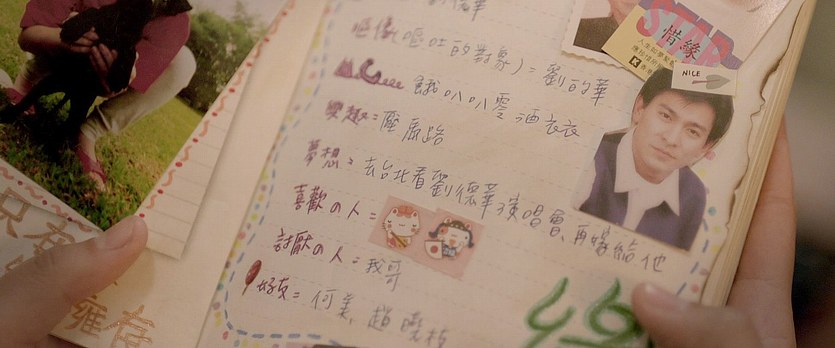 嘔像(嘔吐的對象)=劉的華
餓叭叭零酒衣衣
樂趣=壓馬路
夢想=去台北看劉德華演唱會,再嫁給他
喜歡の人=
討厭の人=我哥
好友=何美,趙曉枝
STAR
惜緣
NICE
只有
擁有
緣